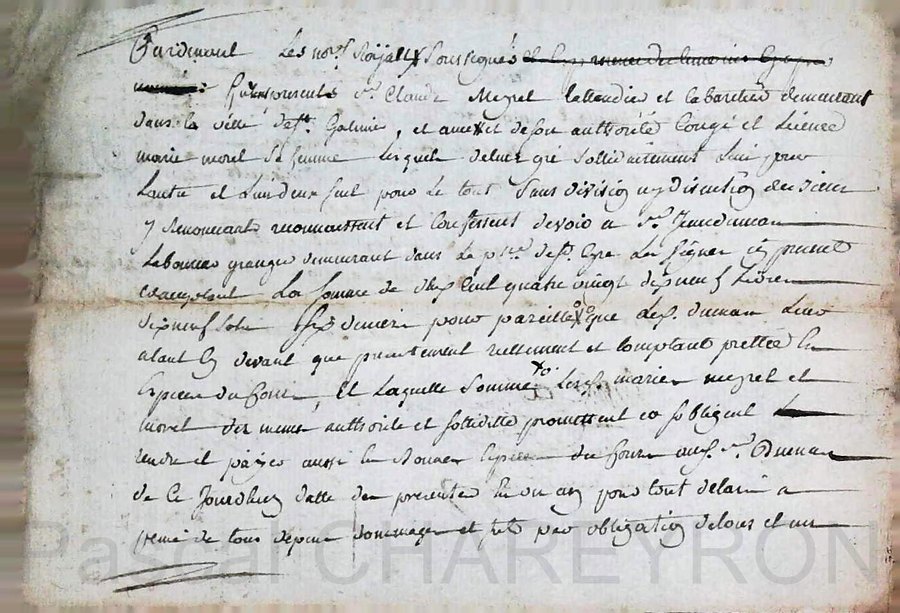 Pardevant Les nores Royaux Soussignés
furent présents sr Claude Meyret lattendier et Cabaretier demeurant
dans la ville de st Galmier, et avec et de son authorité Congé et Licence
marie morel sa femme lesquels de leur gré sollidairement L'un pour
Lautre et L'un deux seul pour Le tout Sans division ny discution des
y Renonceant reconnaissent et Confessent devoir a sr
grangé demeurant dans La psse de st Cyre Les Vignes icy présent
acceptant La somme de Cent quatre vingt dixneuf Livres
dixneuf Sols six deniers pour pareille que Led. Leur
alant Ces devant que présentement réellement et Comptant prettée En
Espèces du Cours, Et Laquelle Somme Lesd. mariés meyret et
morel de meme authorité et sollidité promettent et sobligent
rendre et payer aussi En Bonnes Espèces du Cours aud. sr
de Ce Jourdhuy datte des présentes En un an pour tout délais a
peine de tous dépens dommages et fait par obligation de tous et un
Pascal CHAREYRON